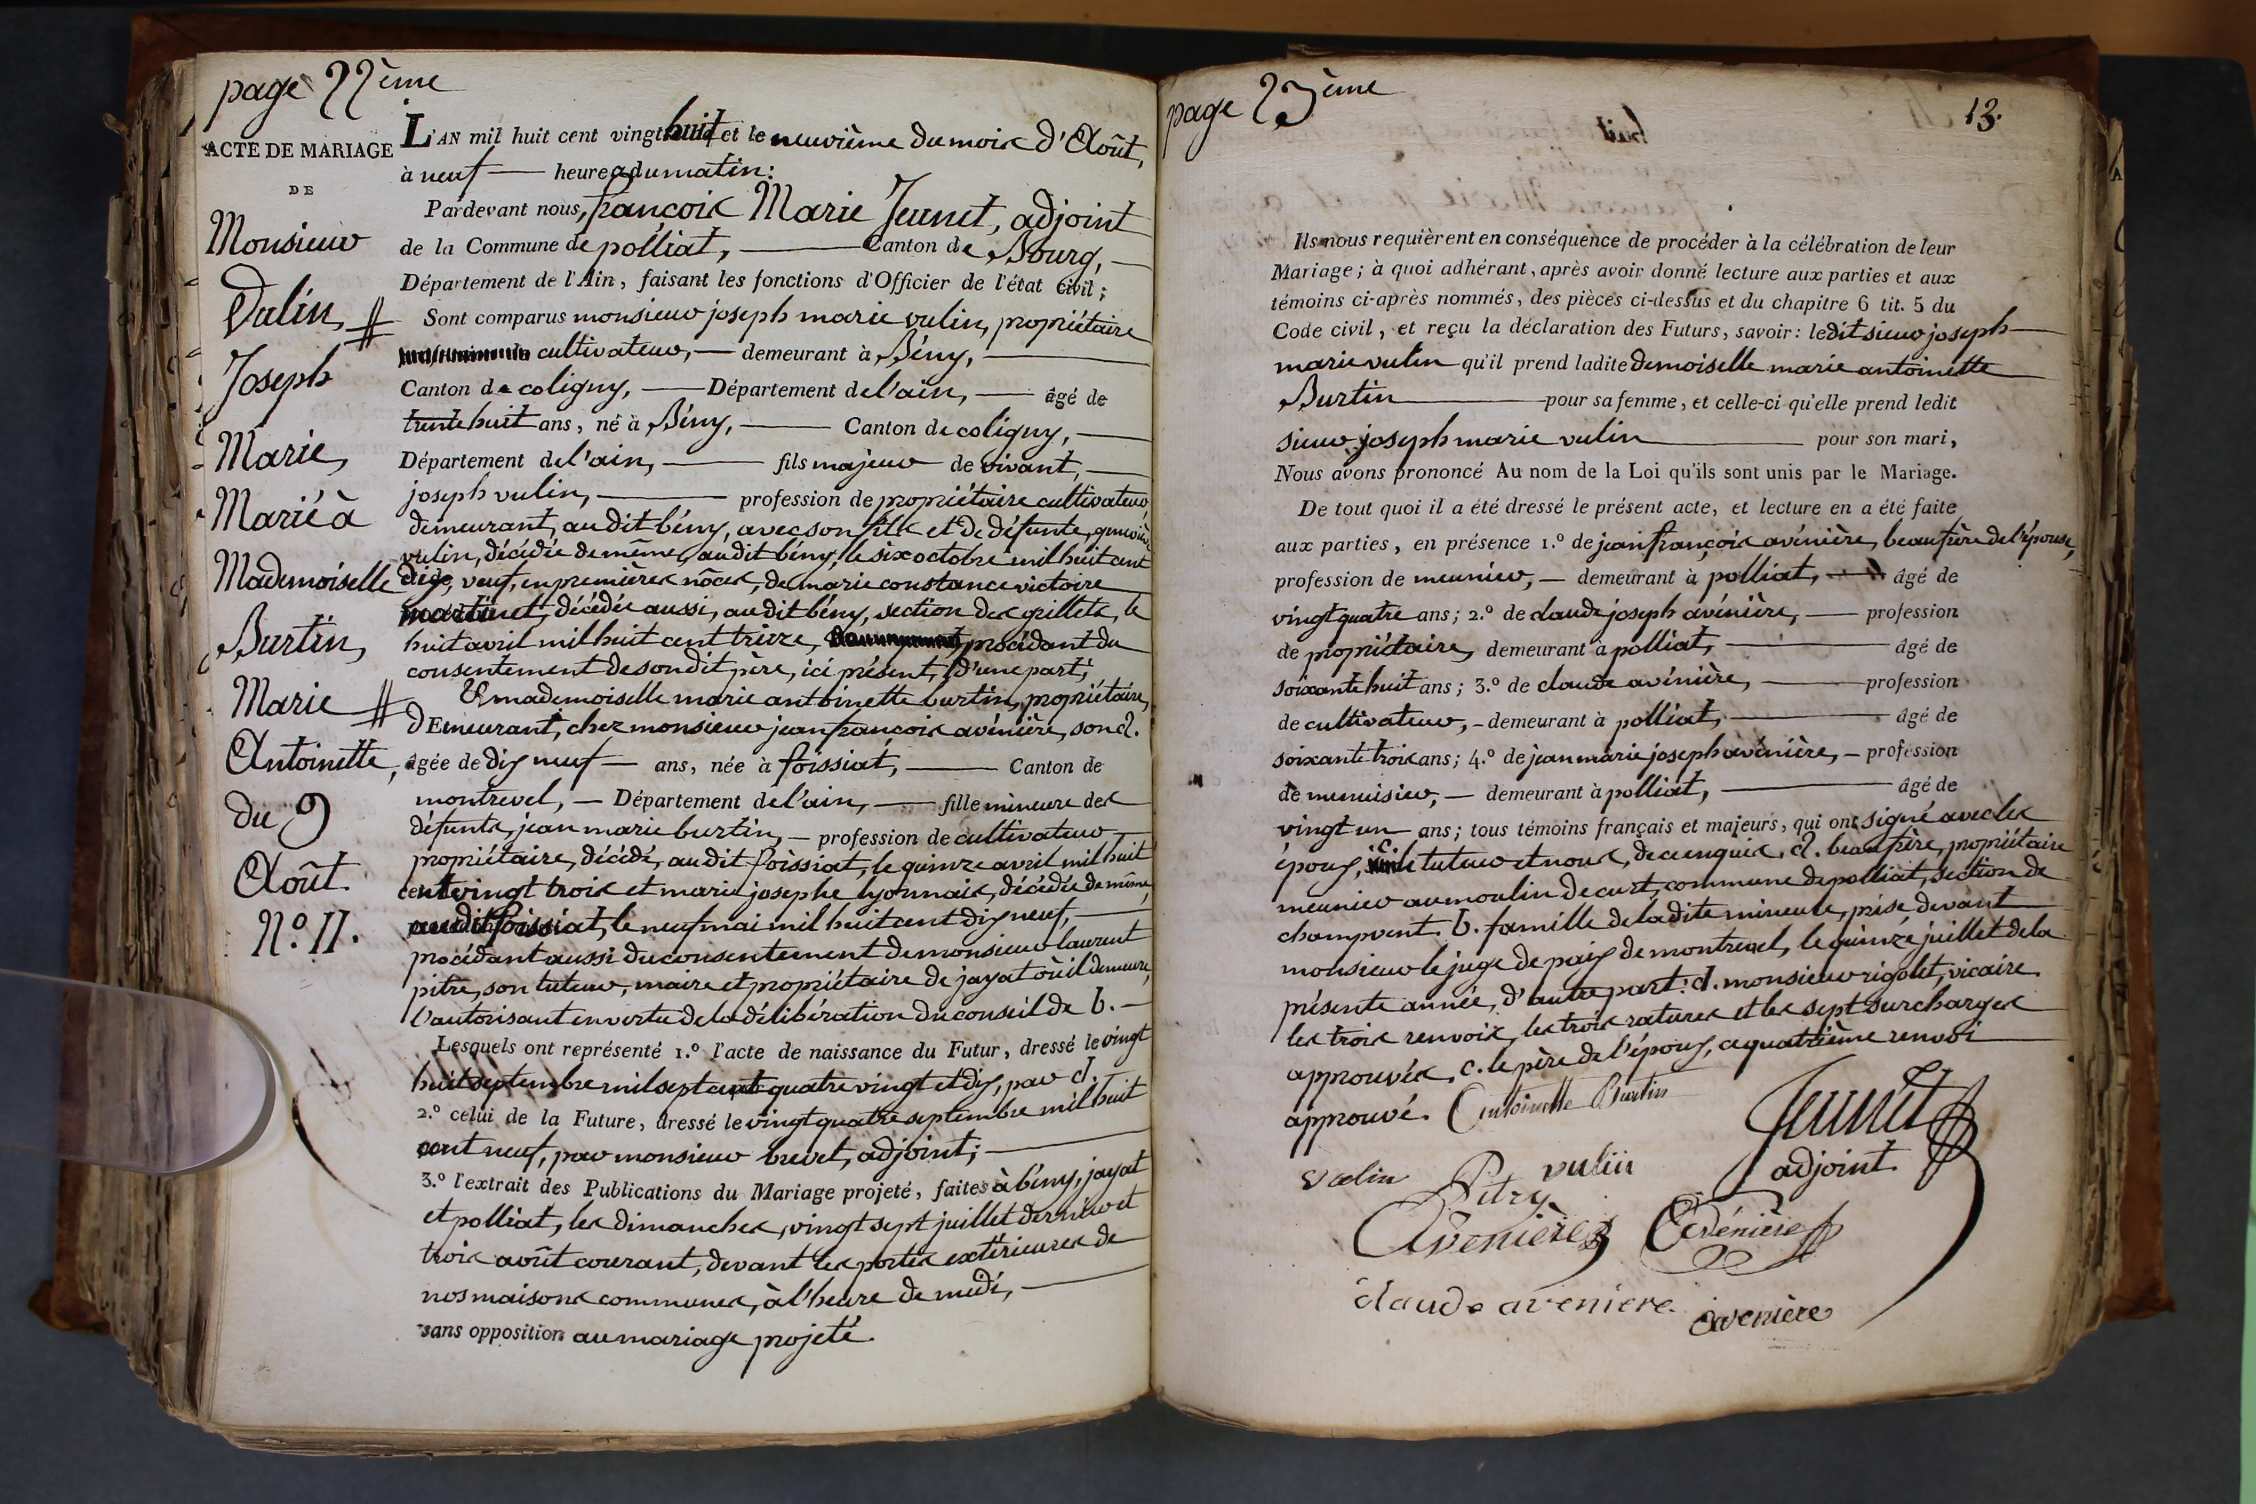 page 22ème
ACTE DE MARIAGE
DE
Monsieur
Vulin,
Joseph
Marie,
Marié à
Mademoiselle
Burtin,
Marie
Antoinette,
du 9
Août.
N.º 11.
L'AN mil huit cent vingt huit et le neuvième du mois d'Août,
à neuf heures du matin:
Pardevant nous, françois Marie Jeunet, adjoint
de la Commune de polliat, Canton de Bourg,
Département de l'Ain, faisant les fonctions d'Officier de l'état civil;
Sont comparus monsieur joseph marie vulin, propriétaire
cultivateur, demeurant à Bény,
Canton de coligny, Département de l'ain, âgé de
trente huit ans, né à Bény, Canton de coligny,
Département de l'ain, fils majeur de vivant,
joseph vulin, profession de propriétaire cultivateur,
demeurant, au dit bény, avec son fils et de défunte, genevième
vulin, décédée de même, au dit bény, le six octobre mil huit cent
veuf, en premières nôces, de marie constance victoire
martinet, décédée aussi, au dit bény, section des grillets, le
huit avril mil huit cent treize, procédant du
consentement de son dit père, ici présent, d'une part;
Et mademoiselle marie antoinette burtin, propriétaire,
dEmeurant, chez monsieur jean françois avénière, son a.
âgée de dix neuf ans, née à foissiat, Canton de
montrevel, Département de l'ain, fille mineure des
défunts, jean marie burtin, profession de cultivateur
propriétaire, décédé, au dit foissiat, le quinze avril mil huit
cent vingt trois et marie josephe lyonnais, décédée de même,
au dit foissiat, le neuf mai mil huit cent dix neuf,
procédant aussi du consentement de monsieur laurent
pitre, son tuteur, maire et propriétaire de jayat où il demeure,
l'autorisant en vertu de la délibération du conseil de b.
Lesquels ont représenté 1.º l'acte de naissance du Futur, dressé le vingt
huit septembre mil sept cent quatre vingt et dix, par d.
2.º celui de la Future, dressé le vingt quatre septembre mil huit
cent neuf, par monsieur brevet, adjoint;
3.º l'extrait des Publications du Mariage projeté, faites à bény, jayat
et polliat, les dimanches, vingt sept juillet dernier et
trois août courant, devant les portes extérieures de
nos maisons communes, à l'heure de midi,
sans opposition au mariage projeté.
page 23ème
13.
Ils nous requièrent en conséquence de procéder à la célébration de leur
Mariage; à quoi adhérant, après avoir donné lecture aux parties et aux
témoins ci-après nommés, des pièces ci-dessus et du chapitre 6 tit. 5 du
Code civil, et reçu la déclaration des Futurs, savoir: ledit sieur joseph
marie vulin qu'il prend ladite demoiselle marie antoinette
Burtin pour sa femme, et celle-ci qu'elle prend ledit
sieur joseph marie vulin pour son mari,
Nous avons prononcé Au nom de la Loi qu'ils sont unis par le Mariage.
De tout quoi il a été dressé le présent acte, et lecture en a été faite
aux parties, en présence 1.º de jean françois avénière, beaufrère de l'épouse,
profession de meunier, demeurant à polliat, âgé de
vingt quatre ans; 2.º de claude joseph avénière, profession
de propriétaire, demeurant à polliat, âgé de
soixante huit ans; 3.º de claude avénière, profession
de cultivateur, demeurant à polliat, âgé de
soixante trois ans; 4.º de jean marie joseph avénière, profession
de menuisier, demeurant à polliat, âgé de
vingt un ans; tous témoins français et majeurs, qui ont signé avec les
époux, c. le tuteur et nous, de ce enquis. a. beaufrère, propriétaire
meunier au moulin de curt, commune de polliat, section de
champvent. b. famille de ladite mineure, prise devant
monsieur le juge de paix de montrevel, le quinze juillet de la
présente année, d'autre part: d. monsieur rigolet, vicaire.
les trois renvois, les trois ratures et les sept surcharges
approuvés. c. le père de l'époux, ce quatrième renvoi
approuvé. Antoinette Burtin
Jeunet
adjoint.
vulin Pitre vulin
Avenière Avénière
claude aveniere. avenière